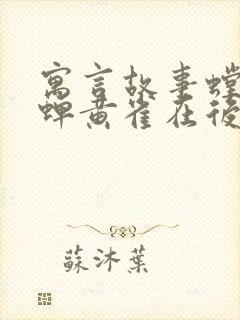 寓言故事螳
蟬黃雀在後
蘇沐葉